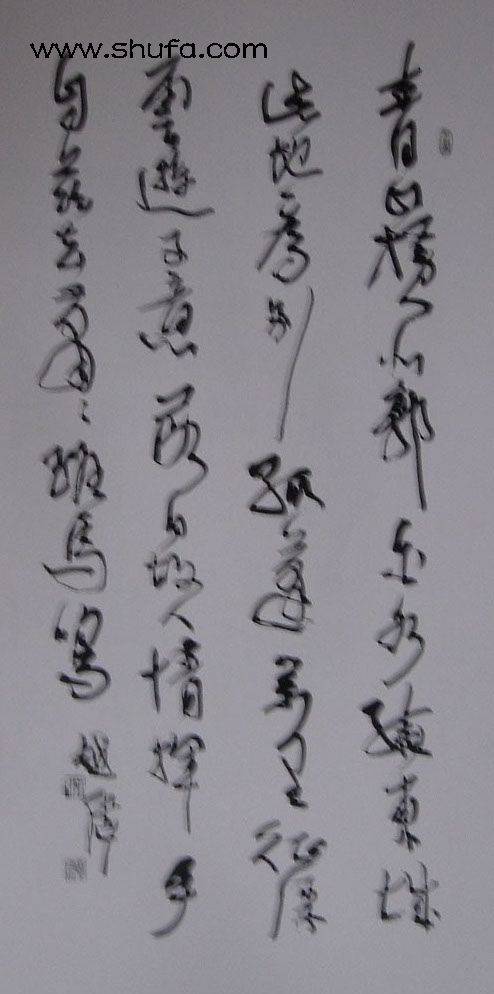 www.shufa.com
青山横北郭白水绕东城
此地一为别孤蓬万里征浮
云游子意落日故人情挥手
自兹去萧萧班马鸣